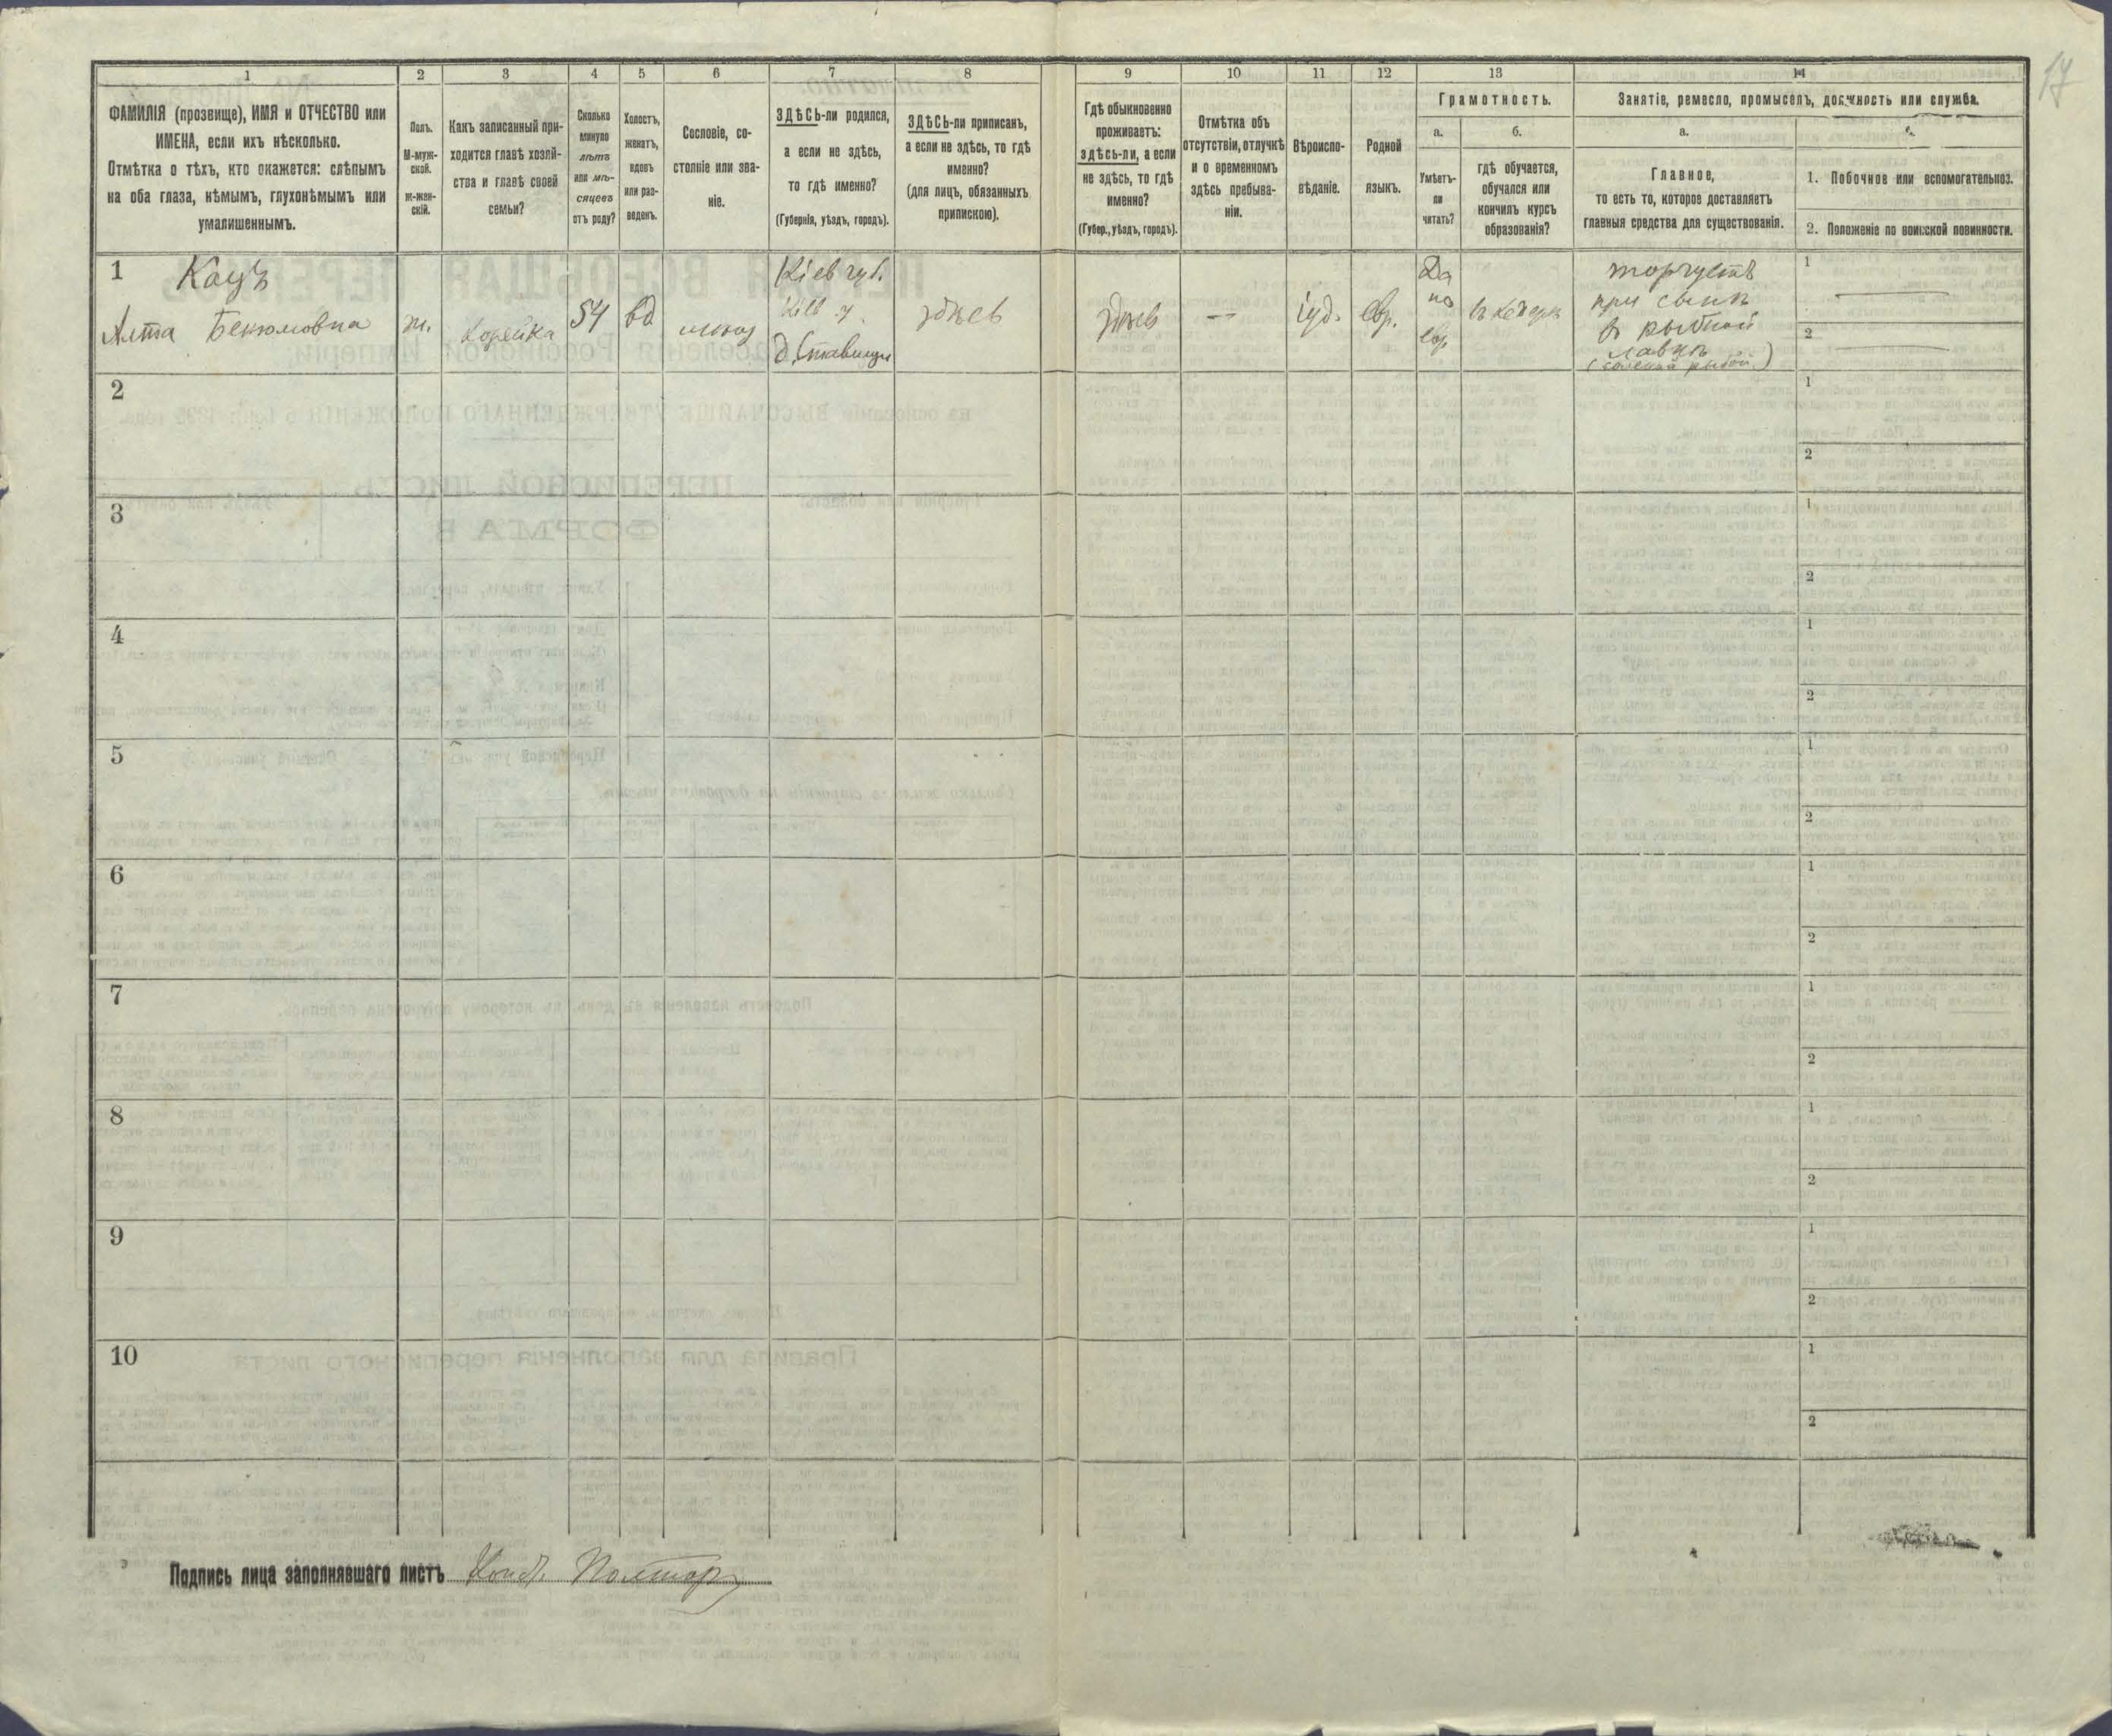 17
1
2
3
4
5
6
7
8
9
10
11
12
13
14
ФАМИЛІЯ (прозвище), ИМЯ и ОТЧЕСТВО или
ИМЕНА, если ихъ нѣсколько.
Отмѣтка о тѣхъ, кто окажется: слѣпымъ
на оба глаза, нѣмымъ, глухонѣмымъ или
умалишеннымъ.
Полъ.
М-муж-
ской.
ж-жен-
скій.
Какъ записанный при-
ходится главѣ хозяй-
ства и главѣ своей
семьи?
Сколько
минуло
лѣтъ
или мѣ-
сяцевъ
отъ роду?
Холостъ,
женатъ,
вдовъ
или раз-
веденъ.
Сословіе, со-
стояніе или зва-
ніе.
ЗДѢСЬ-ли родился,
а если не здѣсь,
то гдѣ именно?
(Губернія, уѣздъ, городъ).
ЗДѢСЬ-ли приписанъ,
а если не здѣсь, то гдѣ
именно?
(для лицъ, обязанныхъ
припискою).
Гдѣ обыкновенно
проживаетъ:
здѣсь-ли, а если
не здѣсь, то гдѣ
именно?
(Губер., уѣздъ, городъ).
Отмѣтка объ
отсутствіи, отлучкѣ
и о временномъ
здѣсь пребыва-
ніи.
Вѣроиспо-
вѣданіе.
Родной
языкъ.
Грамотность.
а.
Умѣетъ-
ли
читать?
б.
гдѣ обучается,
обучался или
кончилъ курсъ
образованія?
Занятіе, ремесло, промыселъ, должность или служба.
а.
Главное,
то есть то, которое доставляетъ
главныя средства для существованія.
1. Побочное или вспомогательное.
2. Положеніе по воинской повинности.
1
Кацъ
Алта Бенюмовна
ж.
хозяйка
54
вд
Кіев губ.
Кіев у.
д. Ставищи
здѣсь
здѣсь
—
іуд.
евр.
Да
по
евр
торгуетъ
при сынѣ
в рыбной
лавкѣ
(соленой рыбой)
1
2
2
1
2
3
1
2
4
1
2
5
1
2
6
1
2
7
1
2
8
1
2
9
1
2
10
1
2
Подпись лица заполнявшаго листъ